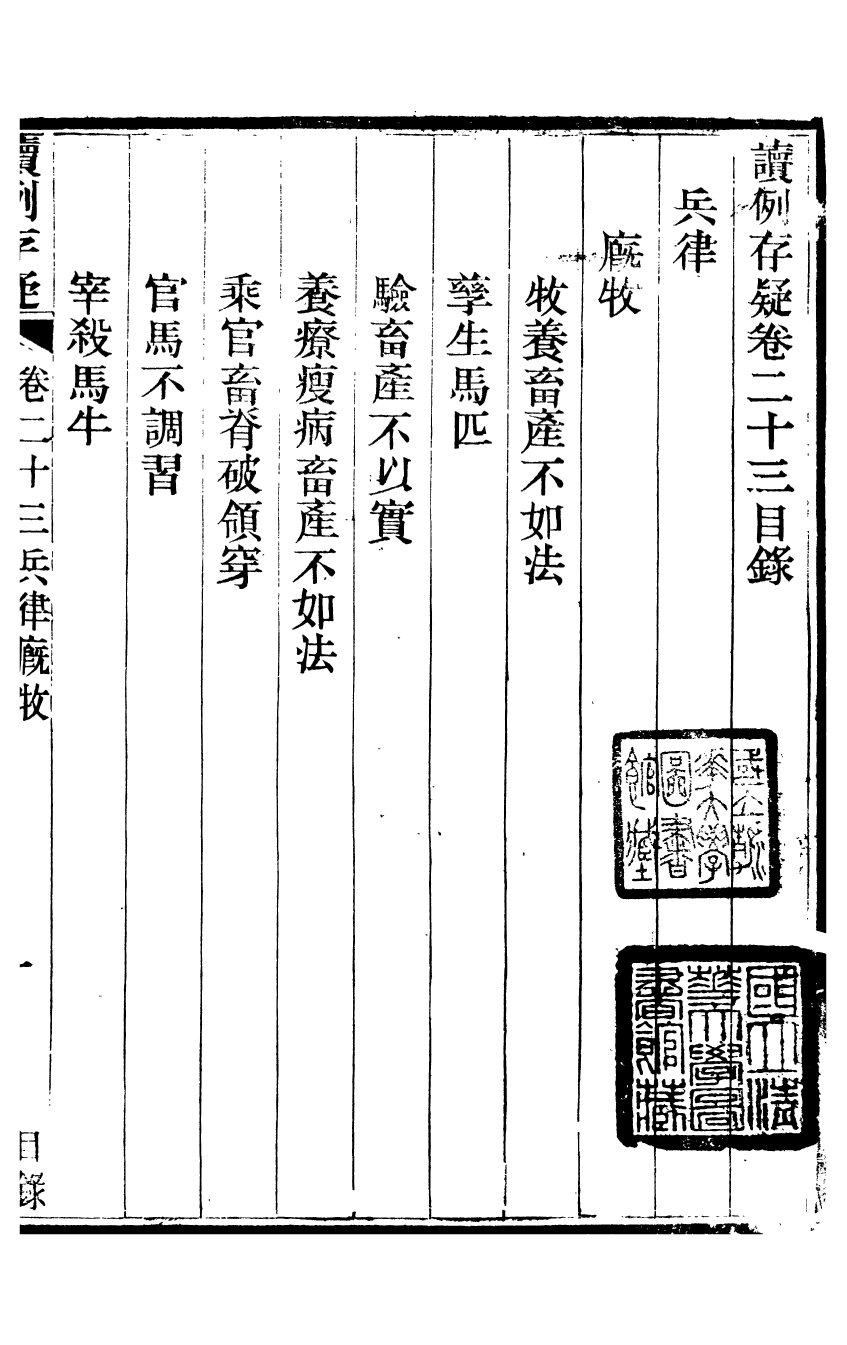 讀例存疑卷二十三目錄
兵律
廐牧
牧養畜產不如法
孳生馬匹
驗畜產不以實
養療瘦病畜產不如法
乘官畜脊破領穿
官馬不調習
宰殺馬牛
讀例存疑 卷二十三兵律廐牧 一 目錄
國立清華大學圖書館藏